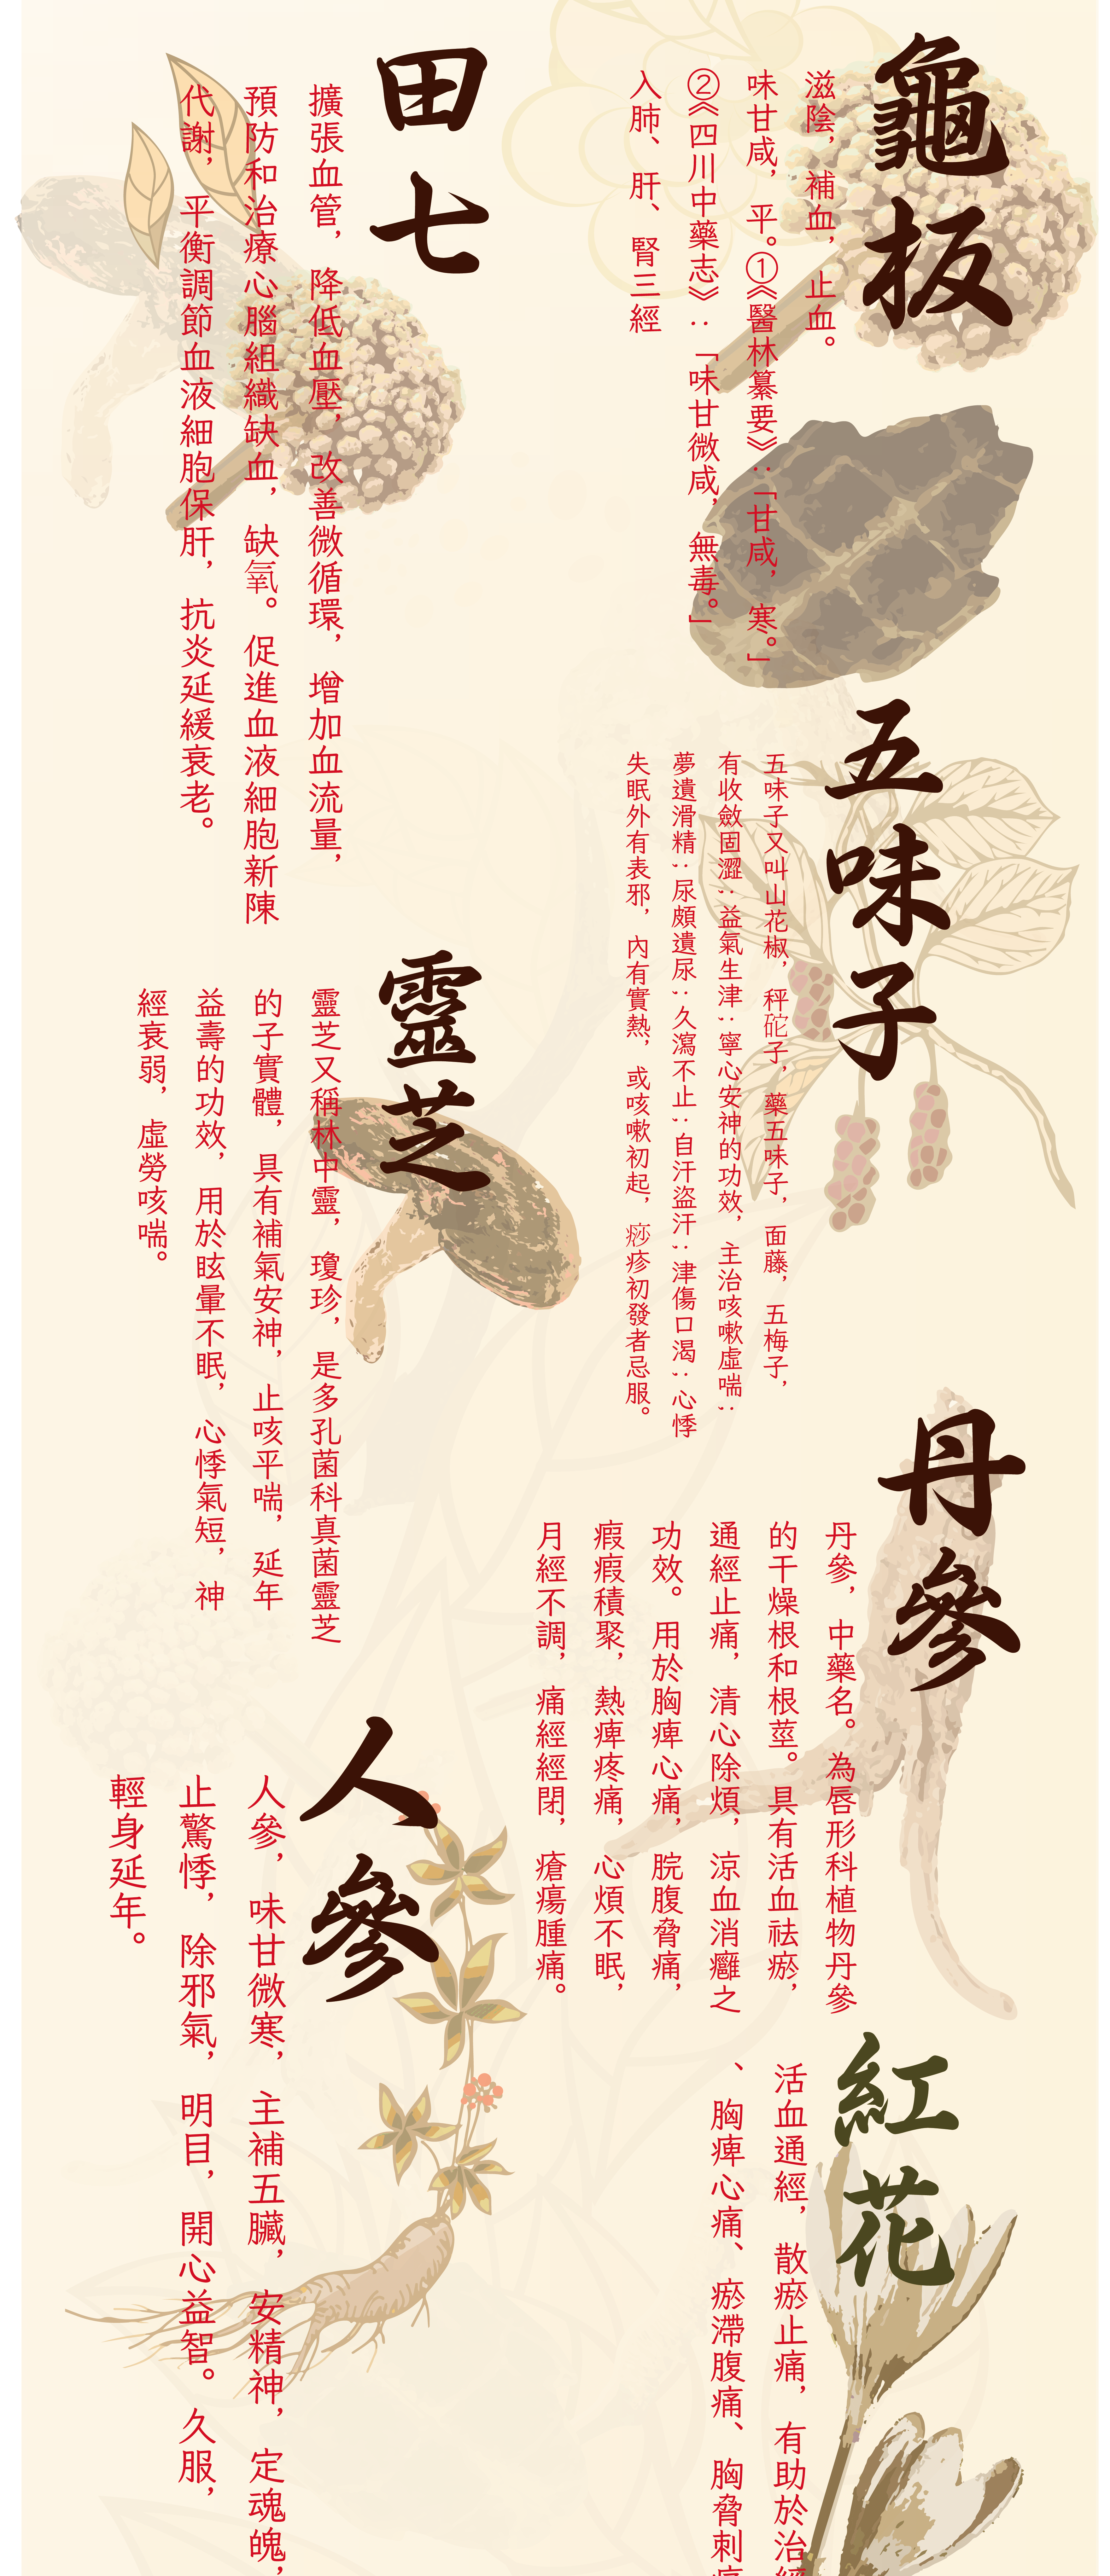 龜板
滋陰，補血，止血。
味甘咸，平。①《醫林纂要》：「甘咸，寒。」
②《四川中藥志》：「味甘微咸，無毒。」
入肺、肝、腎三經
五味子
五味子又叫山花椒，秤砣子，藥五味子，面藤，五梅子，
有收斂固澀；益氣生津；寧心安神的功效，主治咳嗽虛喘；
夢遺滑精；尿頗遺尿；久瀉不止；自汗盜汗；津傷口渴；心悸
失眠外有表邪，內有實熱，或咳嗽初起，痧疹初發者忌服。
丹參
丹參，中藥名。為唇形科植物丹參
的干燥根和根莖。具有活血祛瘀，
通經止痛，清心除煩，涼血消癰之
功效。用於胸痺心痛，脘腹脅痛，
瘕瘕積聚，熱痺疼痛，心煩不眠，
月經不調，痛經經閉，瘡瘍腫痛。
紅花
活血通經，散瘀止痛，有助於治經
、胸痺心痛、瘀滯腹痛、胸脅刺痛
田七
擴張血管，降低血壓，改善微循環，增加血流量，
預防和治療心腦組織缺血，缺氧。促進血液細胞新陳
代謝，平衡調節血液細胞保肝，抗炎延緩衰老。
靈芝
靈芝又稱林中靈，瓊珍，是多孔菌科真菌靈芝
的子實體，具有補氣安神，止咳平喘，延年
益壽的功效，用於眩暈不眠，心悸氣短，神
經衰弱，虛勞咳喘。
人參
人參，味甘微寒，主補五臟，安精神，定魂魄，
止驚悸，除邪氣，明目，開心益智。久服，
輕身延年。